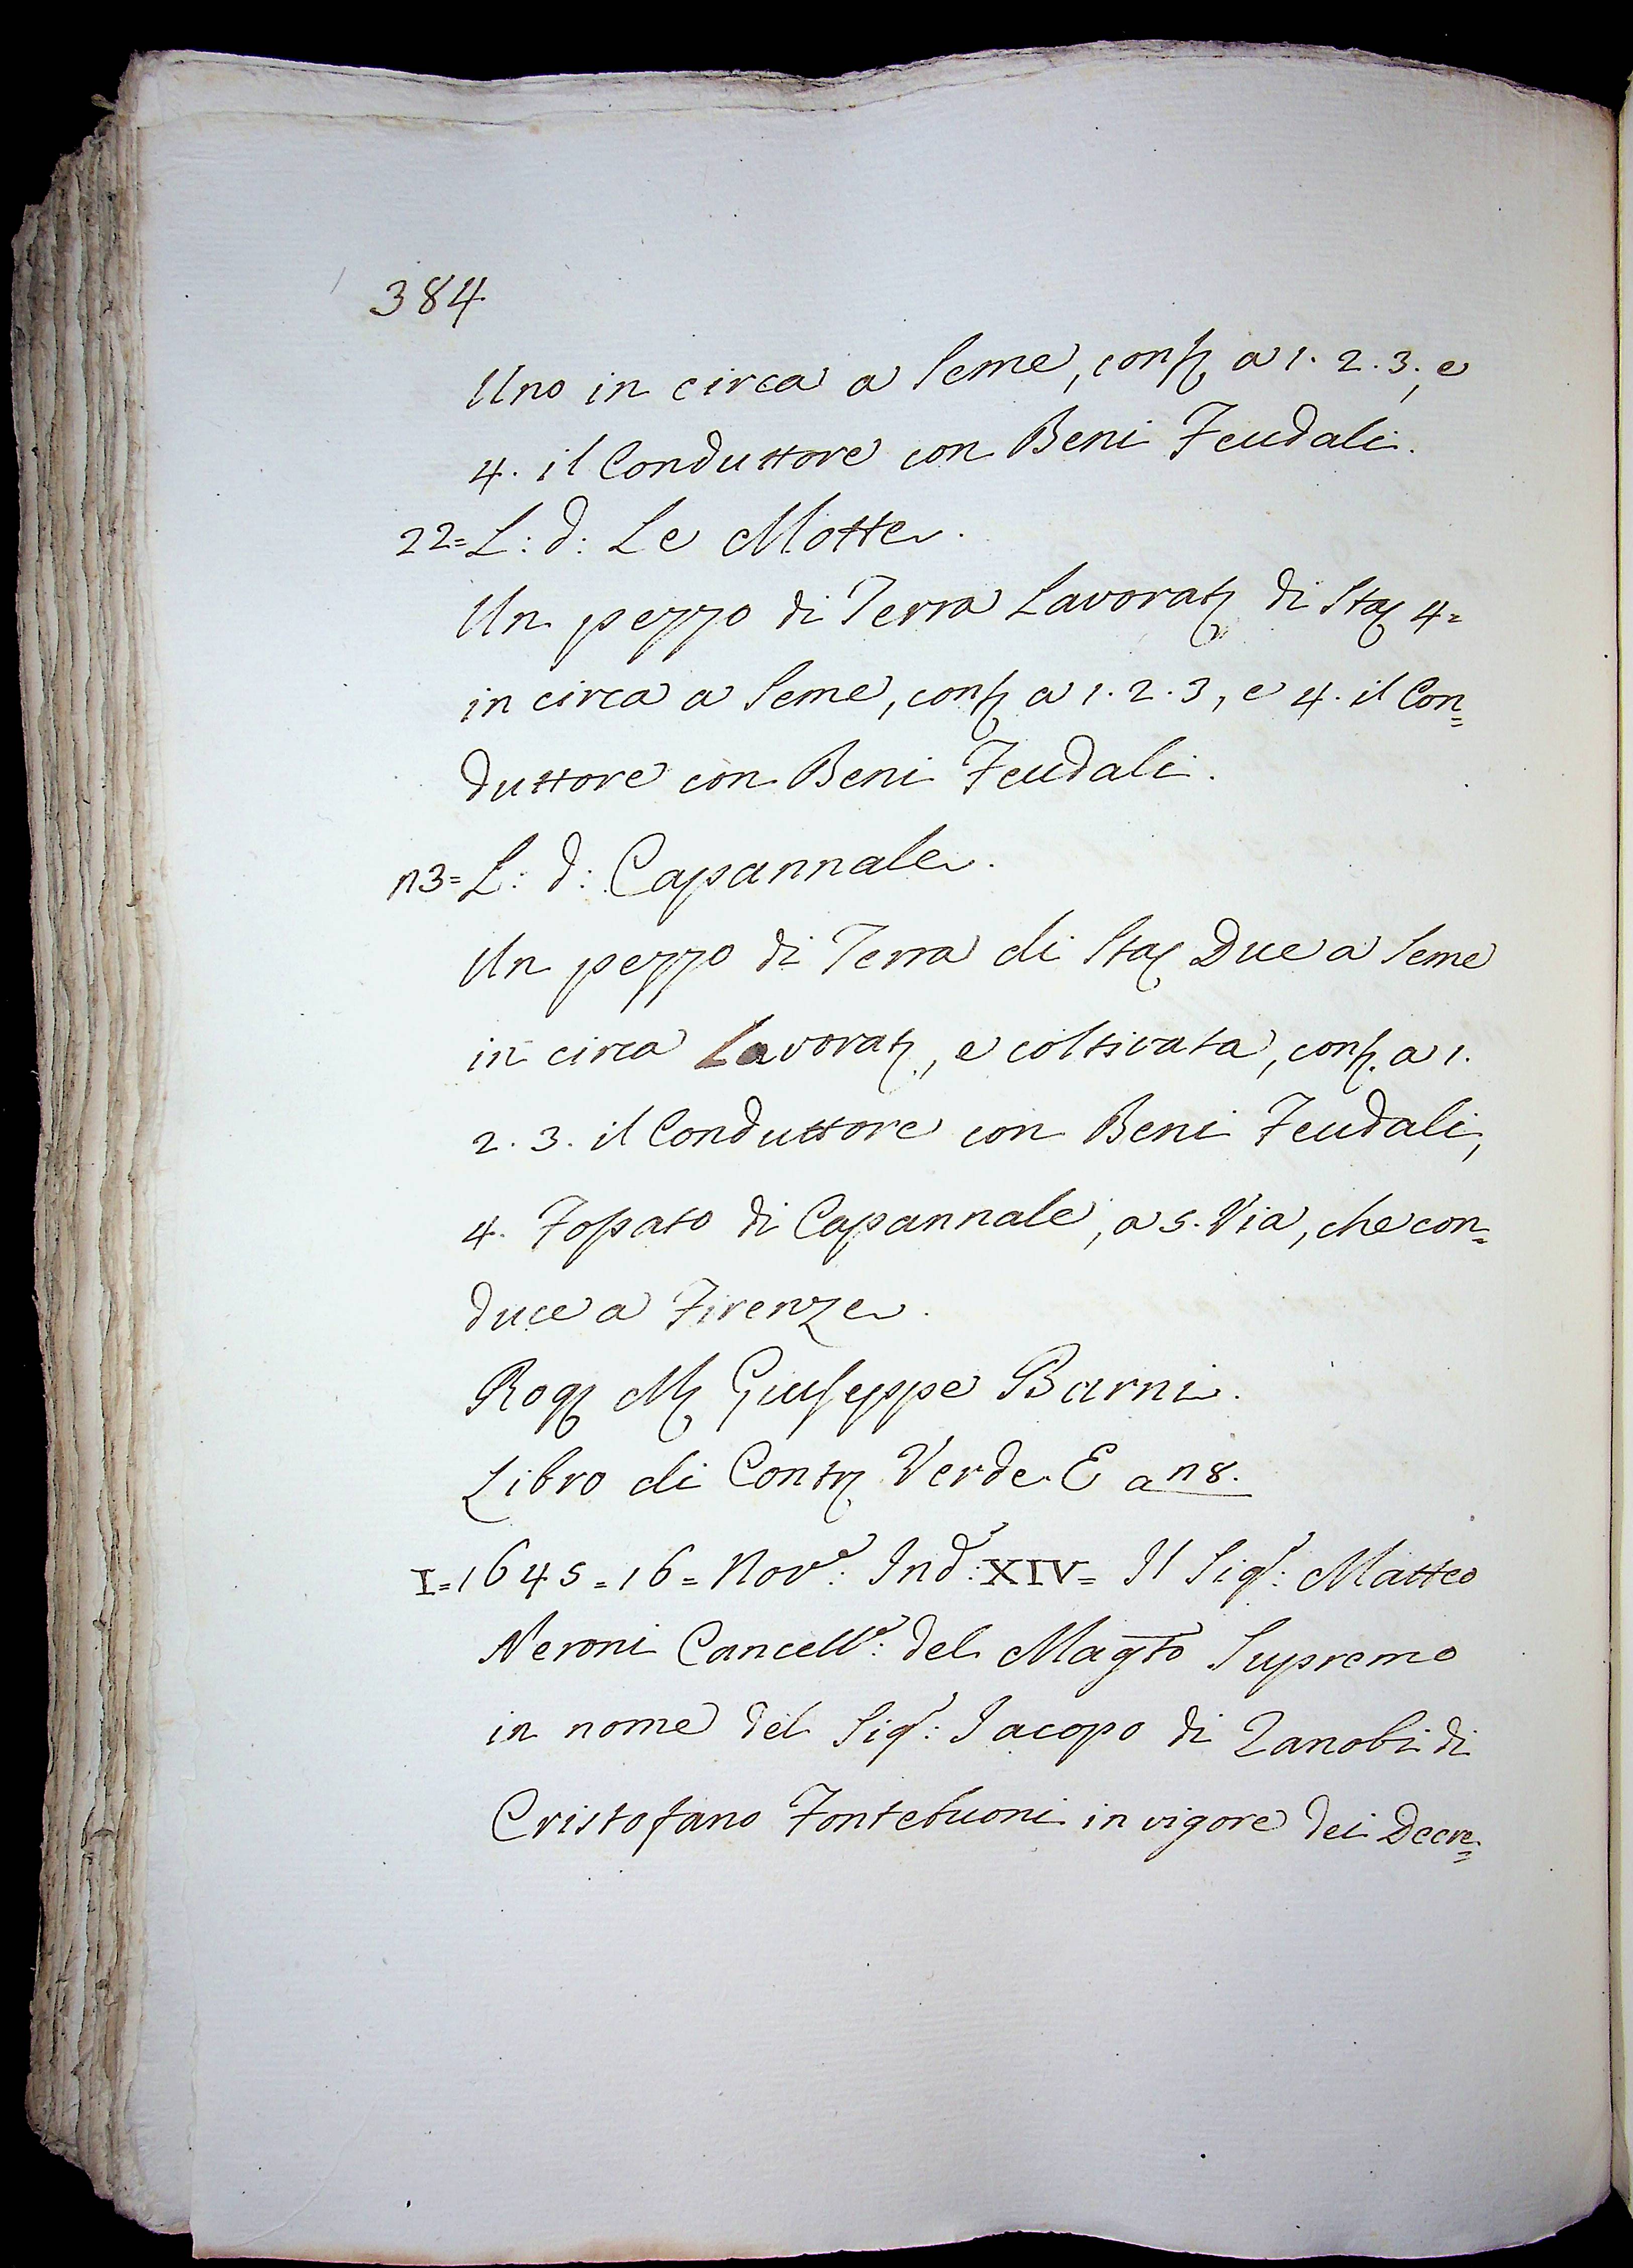 384
Uno in circa a Seme, conf. a 1. 2. 3., e
4. il Conduttore con Beni Feudali.
22= L: d: Le Motte.
Un pezzo di Terra Lavorat. di Sta. 4=
in circa a Seme, conf. a 1. 2. 3, e 4. il Con=
duttore con Beni Feudali.
n3= L: d: Capannale.
Un pezzo di Terra di Sta. Due a Seme
in circa Lavorat., e coltivata, conf. a 1.
2. 3. il Conduttore con Beni Feudali,
4. Fossato di Capannale, a 5. Via, che con=
duce a Firenze.
Rog. M. Giuseppe Barni.
Libro di Contr. Verde. E a n8.
I=1645=16=Nov.e: Ind: XIV= Il Sig.r: Matteo
Neroni Cancell.e: del Magto Supremo
in nome del Sig.r: Jacopo di Zanobi di
Cristofano Fontebuoni in vigore dei Decre=